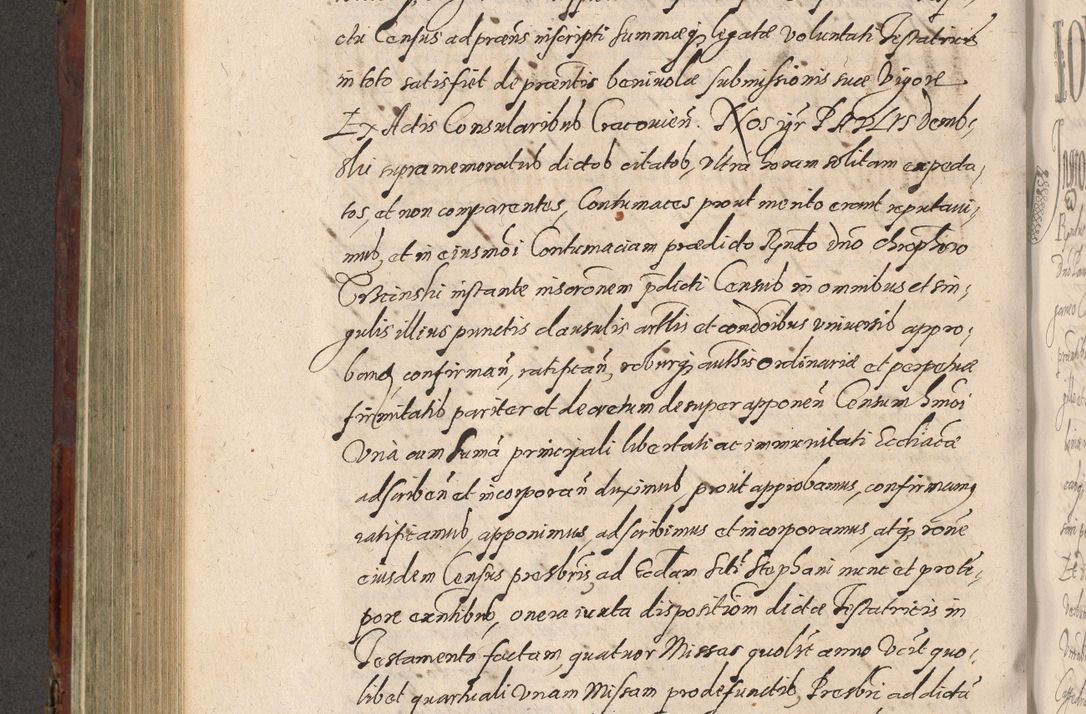 ctu Census ad præns inscripti summæq legatæ voluntati Testatricis
in toto satisfiet de præntis benivolæ submissionis suæ Vigore
Ex Actis Consularibus Cracovien. Nos igr PAULUS Demb,
ski supra memoratus dictos citatos, ultra horam solitam expecta,
tos, et non comparentes, Contumaces prout merito erant reputavi,
mus, et in eiusmoi Contumaciam prædicto Rndo Dno Chrophoro
Trscinski instante insronem pdicti Census in omnibus et sin,
gulis illius punctis clausulis artlis et condoibus universis appro,
band, confirman, ratifican, roburq authis ordinariæ et perpetuæ
firmitatis pariter et decretum desuper apponen Censum hmoi
Una cum suma principali libertati ac immunitati Ecclicæ
adscriben et incorporan duximus, prout approbamus, confirmamq
ratificamus, apponimus, adscribimus et incorporamus, atq rone
eiusdem Census presbris, ad Eccliam Scti Stephani nunc et pro te,
pore exntibus, onera iuxta dispositiom dictæ Testatricis in
Testamento factam, quatuor Missas quolit anno Vdct quo,
libet quartuali Unam Missam pro defunctis, Presbri ad dicta